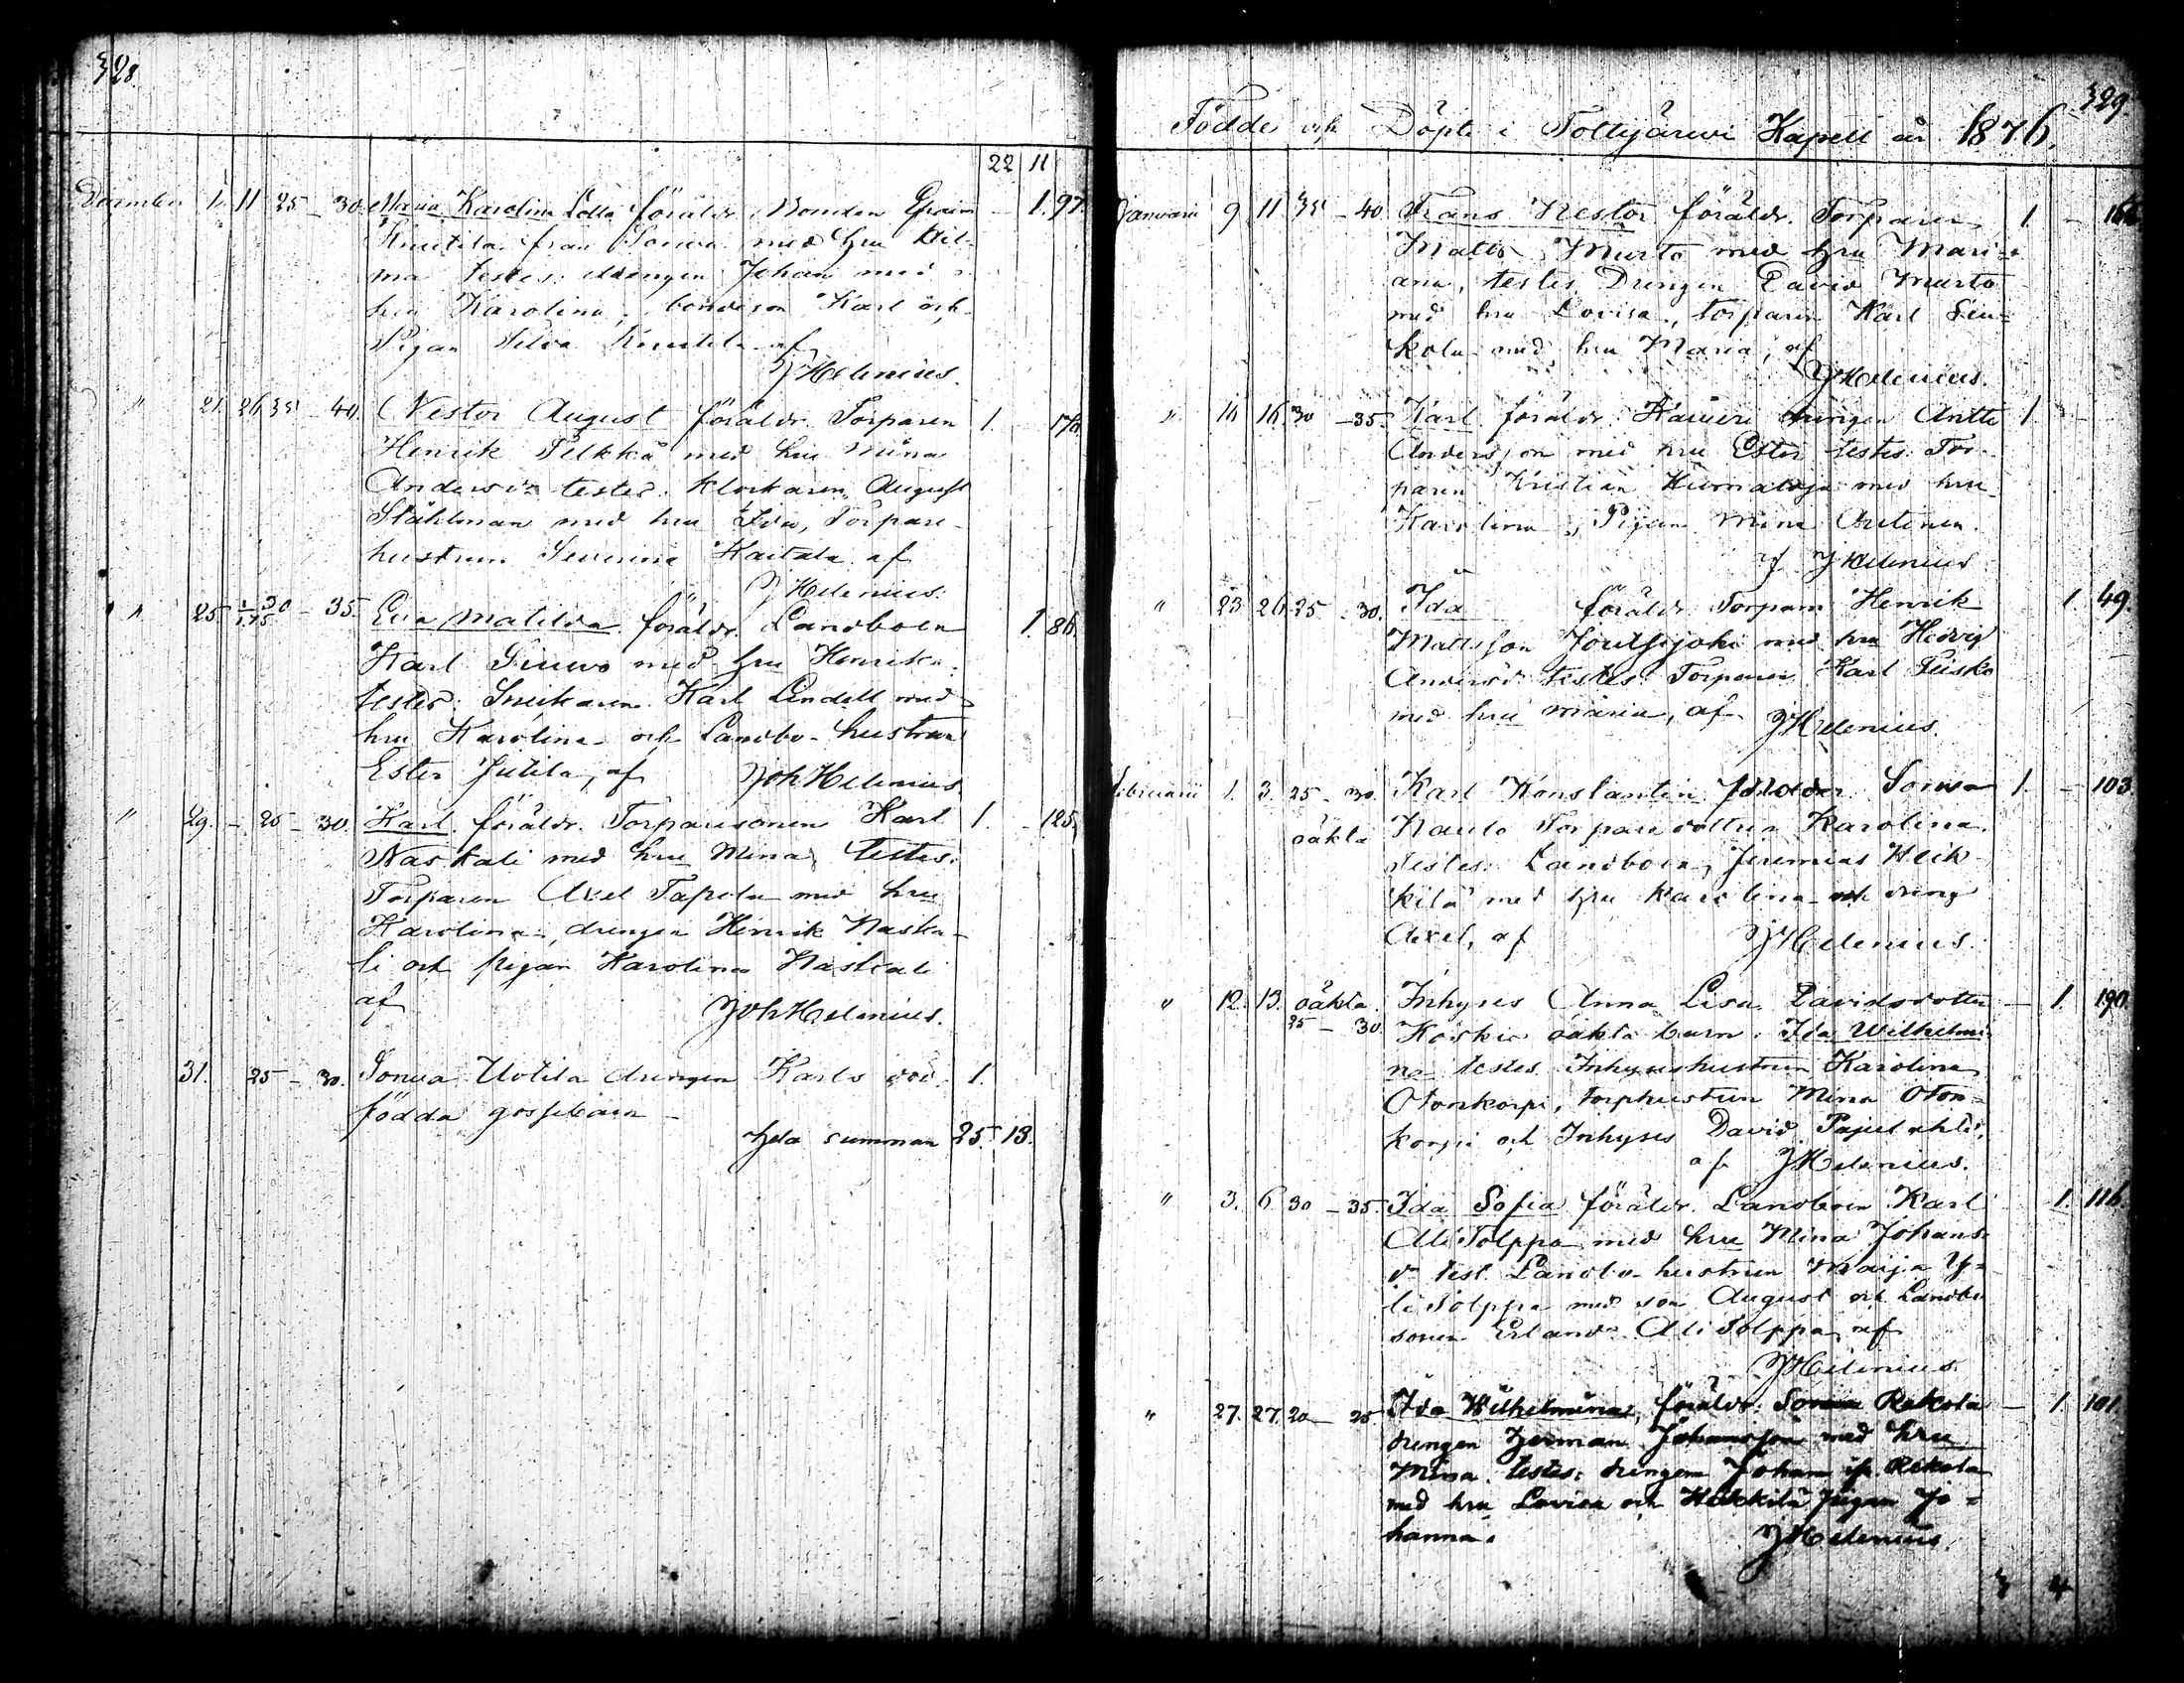 328.
22 11
December 1. 11 25 - 30. Maria Karolina Lotta föräldr. Bonden Efraim - 1. 97.
Knutila från Sorwa med hru Wil-
ma testes: drengen Johan med
hru Karolina, bondeson Karl och
Pigan Knutila af
JHelenius.
" 21. 26 35 - 40. Nestor August föräldr. Torparen 1. -
Henrik Pelkkä med hru Mina
Andersdr testes. klockaren August
Ståhlman med hru Ida, Torpare-
hustrun Severina Kaitala af
JHelenius.
" 25 30 - 35. Eva Matilda föräldr. Landboen 1. 86.
Karl Siuwo med hru Henrika.
testes. Snickaren Karl Lindell med
hru Karolina och Landbo-hustrun
Ester Jutila, af JohHelenius
" 29. - 25 - 30. Karl. föräldr. Torparesonen Karl 1. - 125.
Naskali med hru Mina, testes.
Torparen Axel Tapola med hru
Karolina, drengen Henrik Naska-
li och pigan Karolina Naskali
af JohHelenius.
31. 25 - 30. Sorwa Uotila drengen Karls död 1.
födda gossebarn -
Hela summan 25. 13.
329.
Födde och Döpte i Kapell år 1876.
Januarii 9 11 35 - 40. Frans Nestor föräldr. Torparen 1. -
Matts Murto med hru Mari-
ana, testes Drengen David Murto
med hru Lovisa, torparen Karl Siu-
kola med hru Maria, af
JHelenius.
" 16. 30 - 35. Karl föräldr. drengen Antti 1. -
Andersson med hru Ester testes Tor-
paren Kristian med hru
Karolina, Pigan Mina
af JHelenius
" 23 26 25 - 30. Ida föräldr. Torparen Henrik 1. 49.
Mattsson med hru Hedvig
Andersdr testes. Torparen Karl
med hru Maria, af JHelenius.
Februarii 1. 3. 25 - 30. Karl Konstantin föräldr. Sorwa 1. - 103.
oäkta Torparedottren Karolina.
Testes: Landboen Jeremias Heik-
kilä med hru Karolina och dreng
Axel, af JHelenius.
" 12. 13. oäkta. Inhyses Anna Lisa Davidsdotter - 1. 190.
25 - 30. Koskis oäkta barn. Ida Wilhelmi-
na testes. Inhyseshustrun Karolina
Otonkorpi, torphustrun Mina Oton-
korpi och Inhyses David Pajulahti,
af JHelenius.
" 3. 6 30 - 35. Ida Sofia föräldr. Landboen Karl 1. 116.
Ali Tolppa med hru Mina Johans-
dr test. Landbo-hustrun Maija Y-
li Tolppa med son August och Landbo
sonen Erland Ali Tolppa, af
JHelenius
" 27. 27. 20 - 25 Ida Wilhelmina, föräldr: Sorwa Rekola - 1. 101.
drengen Herman Johansson med hru
Mina. testes: drengen Johan if. Rekola
med hru Lovisa och Heikkilä pigan Jo-
hanna. JHelenius
3 4